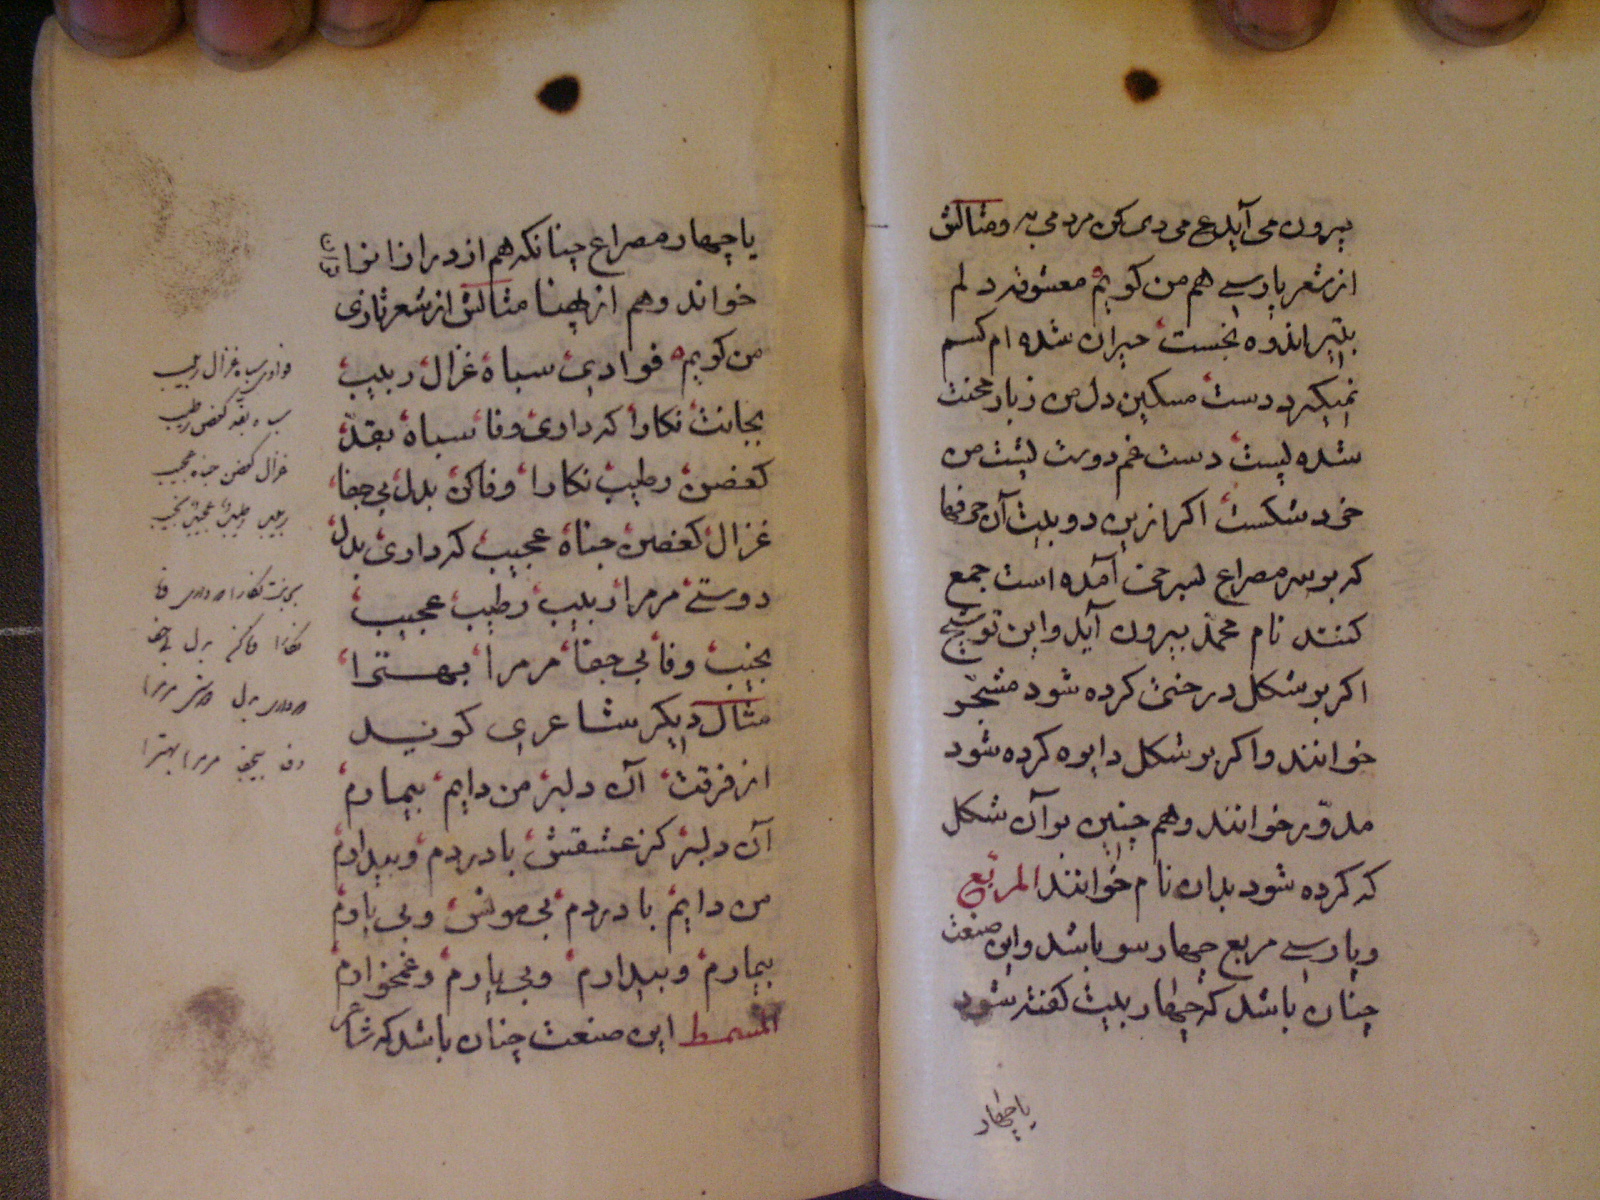 بیرون می آید ع می دی کن مردمی به ومثالش
از شعر پارسی هم من کویم معشوقه دلم
بتیر اندوه بخست حیران شده ام کسم
نمیکیرد دست مسکین دل من ز بار محنت
شده پست دست غم دوست پشت من
خرد شکست اکر ازین دو بیت آن حرفها
که بر سر مصراع بسرخی آمده است جمع
کنند نام محمد بیرون آید واین توشیح
اکر بر شکل درختی کرده شود مشجّر
خوانند واکر بر شکل دایره کرده شود
مدوّر خوانند وهم چنین بر آن شکل
که کرده شود بدان نام خوانند المربّع
وپارسی مربع چهار سو باشد واین صنعت
چنان باشد که چهار بیت کفته شود
یا چهار
یا چهار مصراع چنانکه هم از درازا توان
خواند وهم از پهنا مثالش از شعر تازی
من کویم فوادی سباه غزال ربیب
بجانت نکارا که داری وفا سباه بقدّ
کغصن رطیب نکارا وفا کن بدل بی جفا
غزال کغصن جناه عجیب که داری بدل
دوستی مر مرا ربیب رطیب عجیب
بجنیب وفا بی جفا مر مرا بهترا
مثال دیکر شاعری کوید
از فرقت آن دلبر من دایم بیمارم
آن دلبر کز عشقش با دردم وبیدارم
من دایم با دردم بی مونس وبی یارم
بیمارم وبیدارم وبی یارم وغمخوارم
المسمط این صنعت چنان باشد که شاعر
فوادی سباه غزال ربیب
سباه بقد کغصن رطیب
غزال کغصن جناه عجیب
ربیب رطیب عجیب بجنیب
بجانت نکارا که داری وفا
نکارا وفا کن بدل بی جفا
که داری بدل دوستی مر مرا
وفا بی جفا مر مرا بهترا